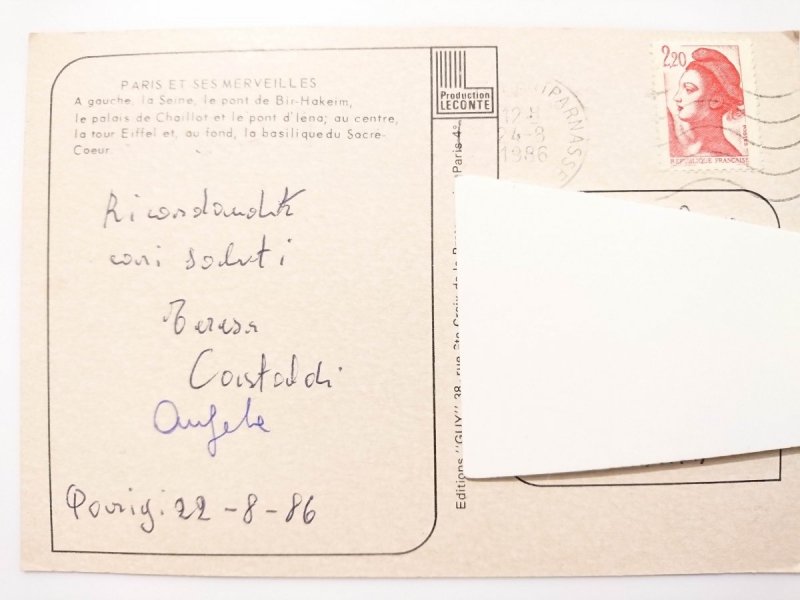 PARIS ET SES MERVEILLES
A gauche, la Seine, le pont de Bir-Hakeim,
le palais de Chaillot et le pont d'Iéna; au centre,
la tour Eiffel et, au fond, la basilique du Sacre-
Coeur.
Production
LECONTE
Ricordandoti
cari saluti
Teresa
Castaldi
Angela
Parigi 22-8-86
Editions "GUY" 38, rue Ste Croix de la
Paris 4e
PARNASSE
24-8
1986
2,20
REPUBLIQUE FRANÇAISE